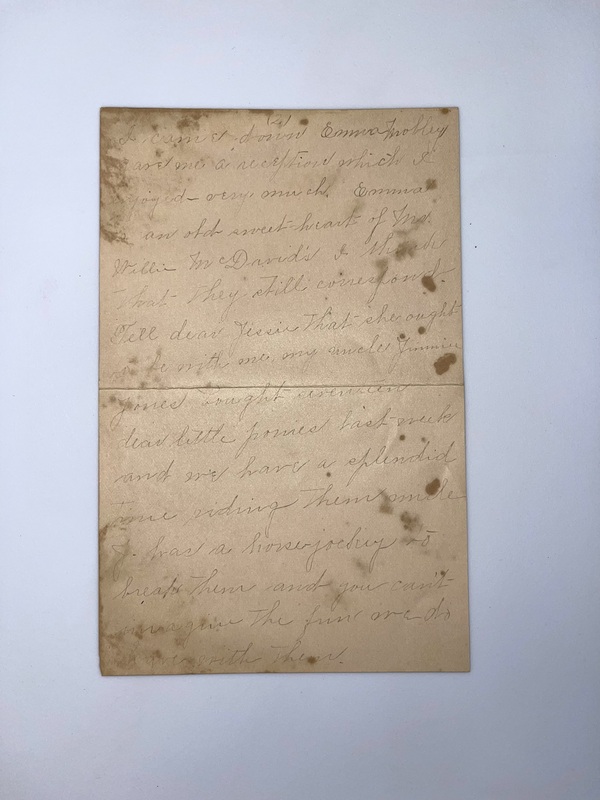 I came down Emma Mobley
gave me a reception which I
enjoyed very much. Emma
is an old sweet heart of Mr.
Willie McDavid's I think
that they still correspond.
Tell dear Jessie that she ought
to be with me, my uncle Jimmie
Jones bought seventeen
dear little ponies last week
and we have a splendid
time riding them uncle
J. has a horse jockey to
break them and you can't
imagine the fun we do
have with them.